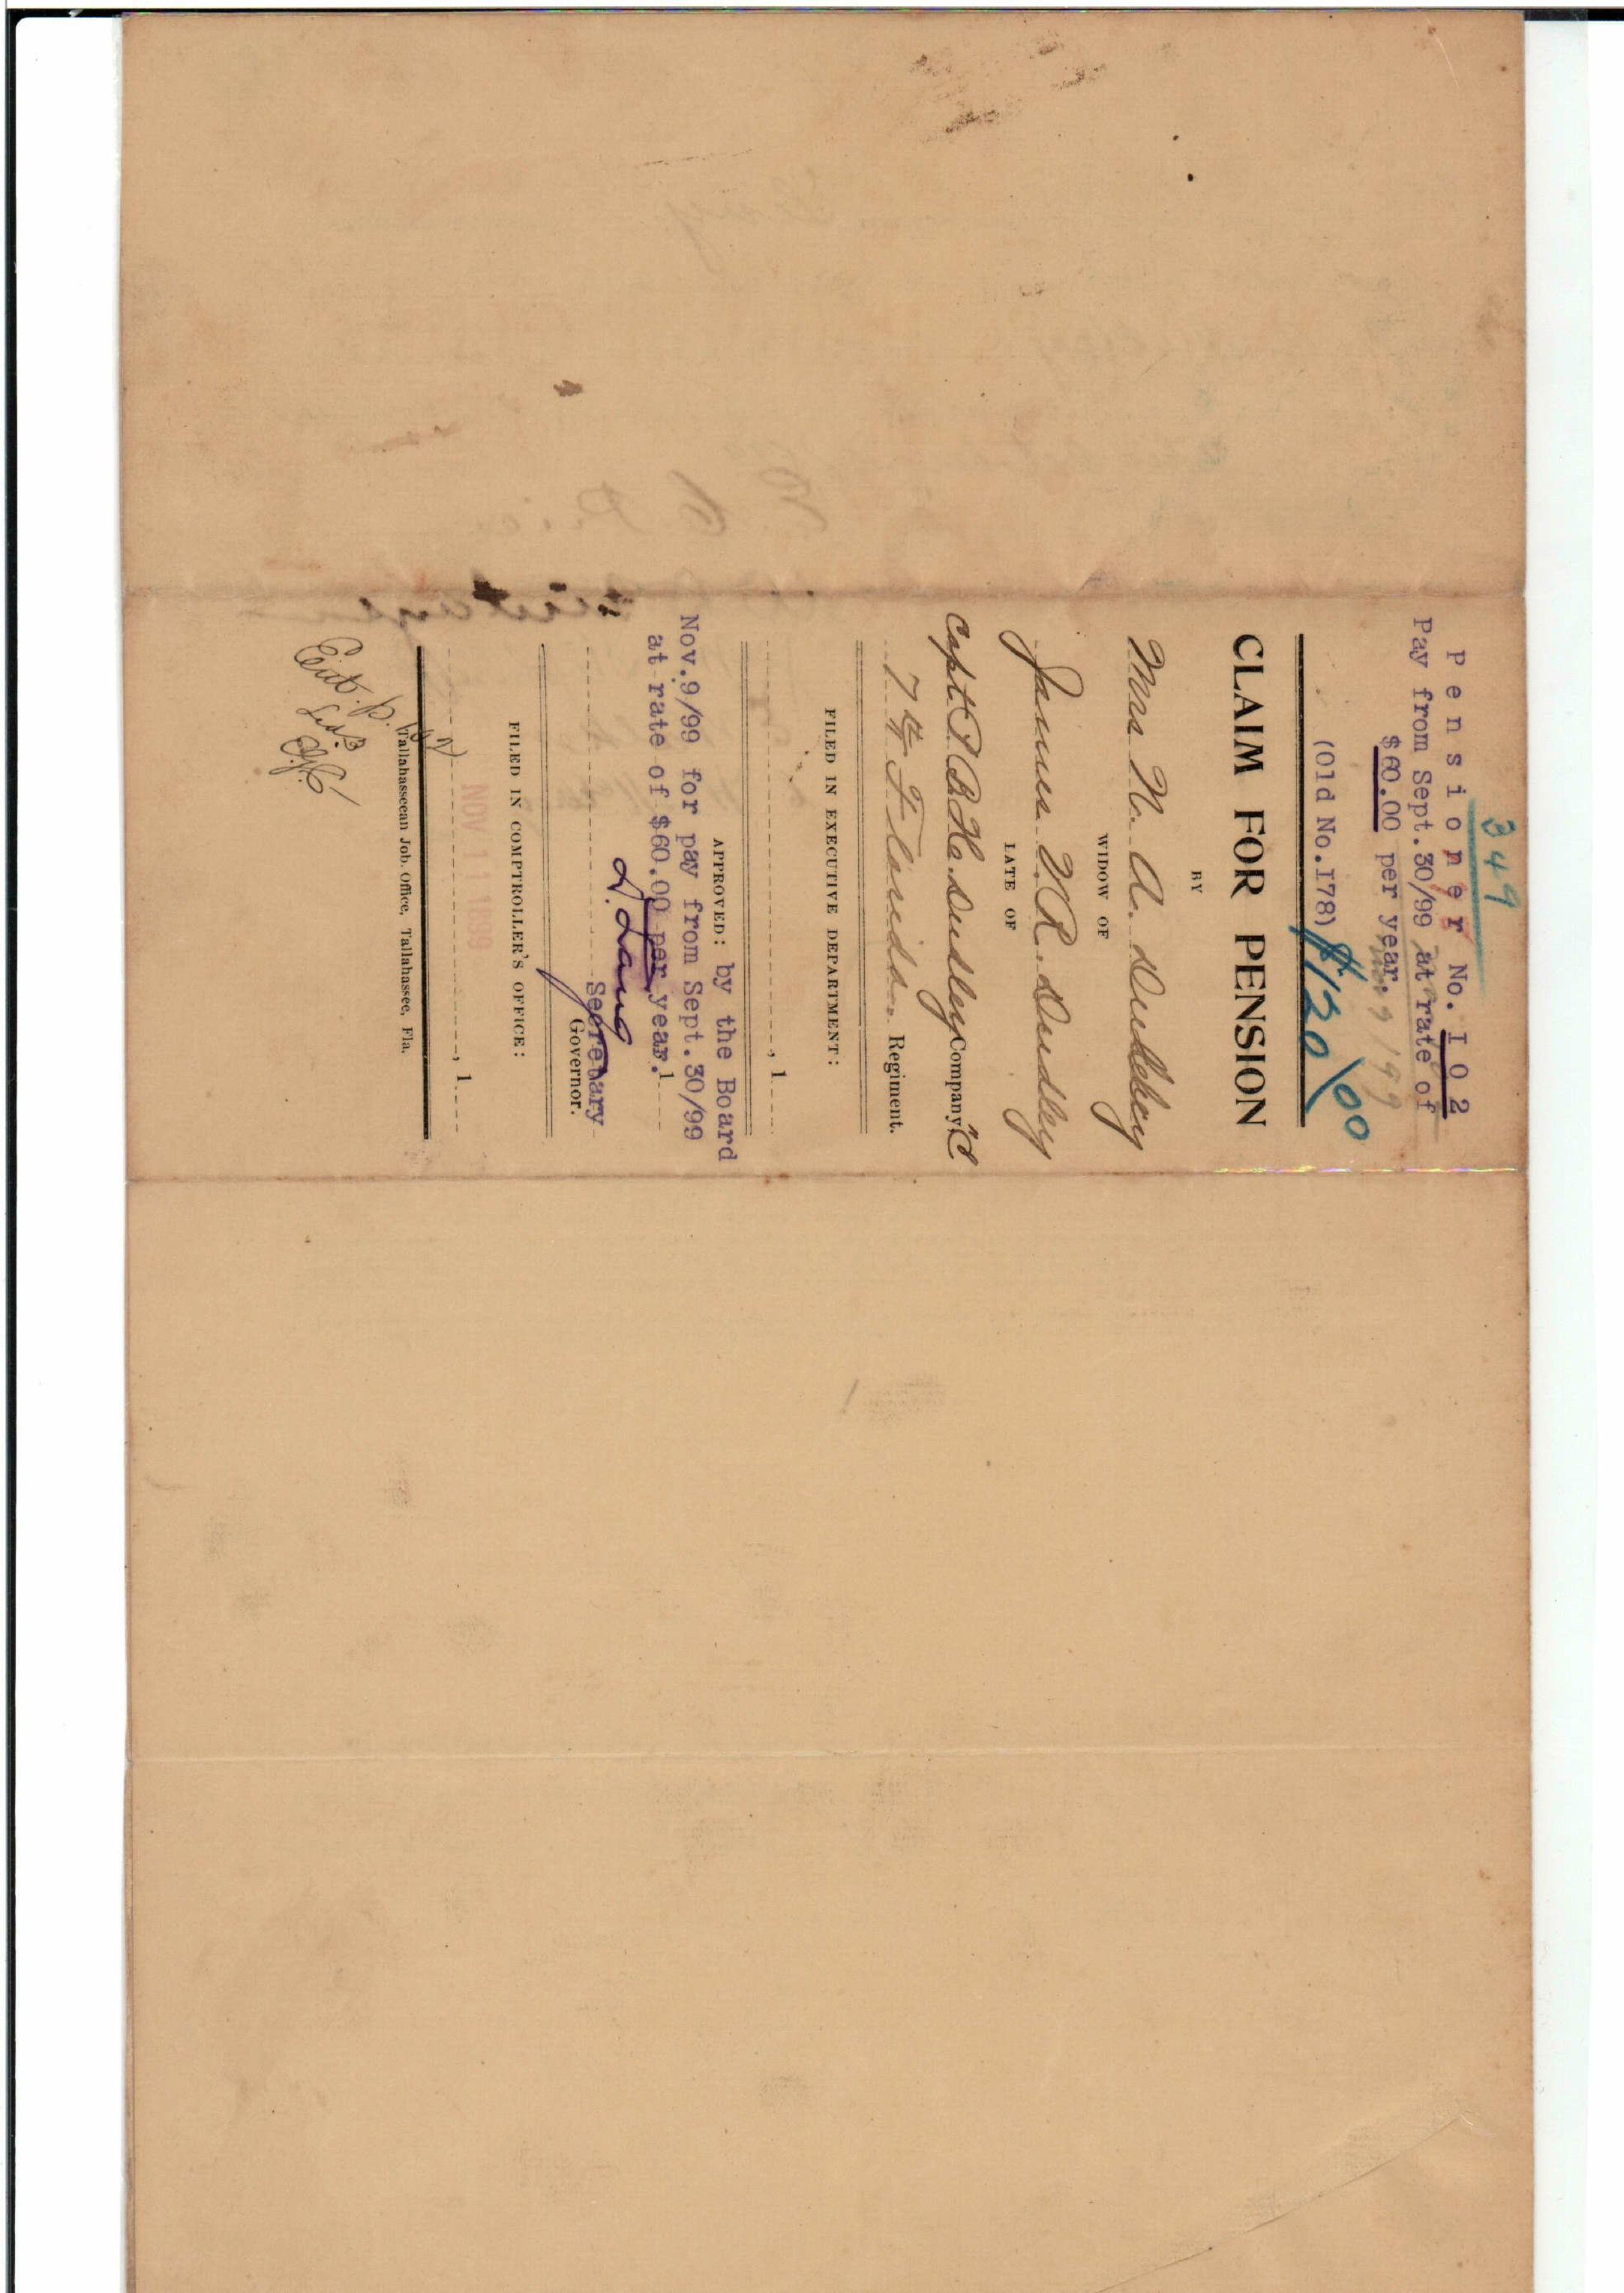 349
Pensioner No. I02
Pay from Sept.30/99 at rate of
$60.00 per year.
(Old No.I78) $120/00
CLAIM FOR PENSION
BY
Mrs N. A. Dudley
WIDOW OF
James W R. Dudley
LATE OF
Capt P. B. H. Dudley Company "C"
7th Florida Regiment.
FILED IN EXECUTIVE DEPARTMENT:
, 1
APPROVED: by the Board
Nov.9/99 for pay from Sept.30/99
at rate of $60.00 per year. 1
L. Lang
Secretary
Governor.
FILED IN COMPTROLLER'S OFFICE:
NOV 11 1899
, 1
Tallahasseean Job. Office, Tallahassee, Fla.